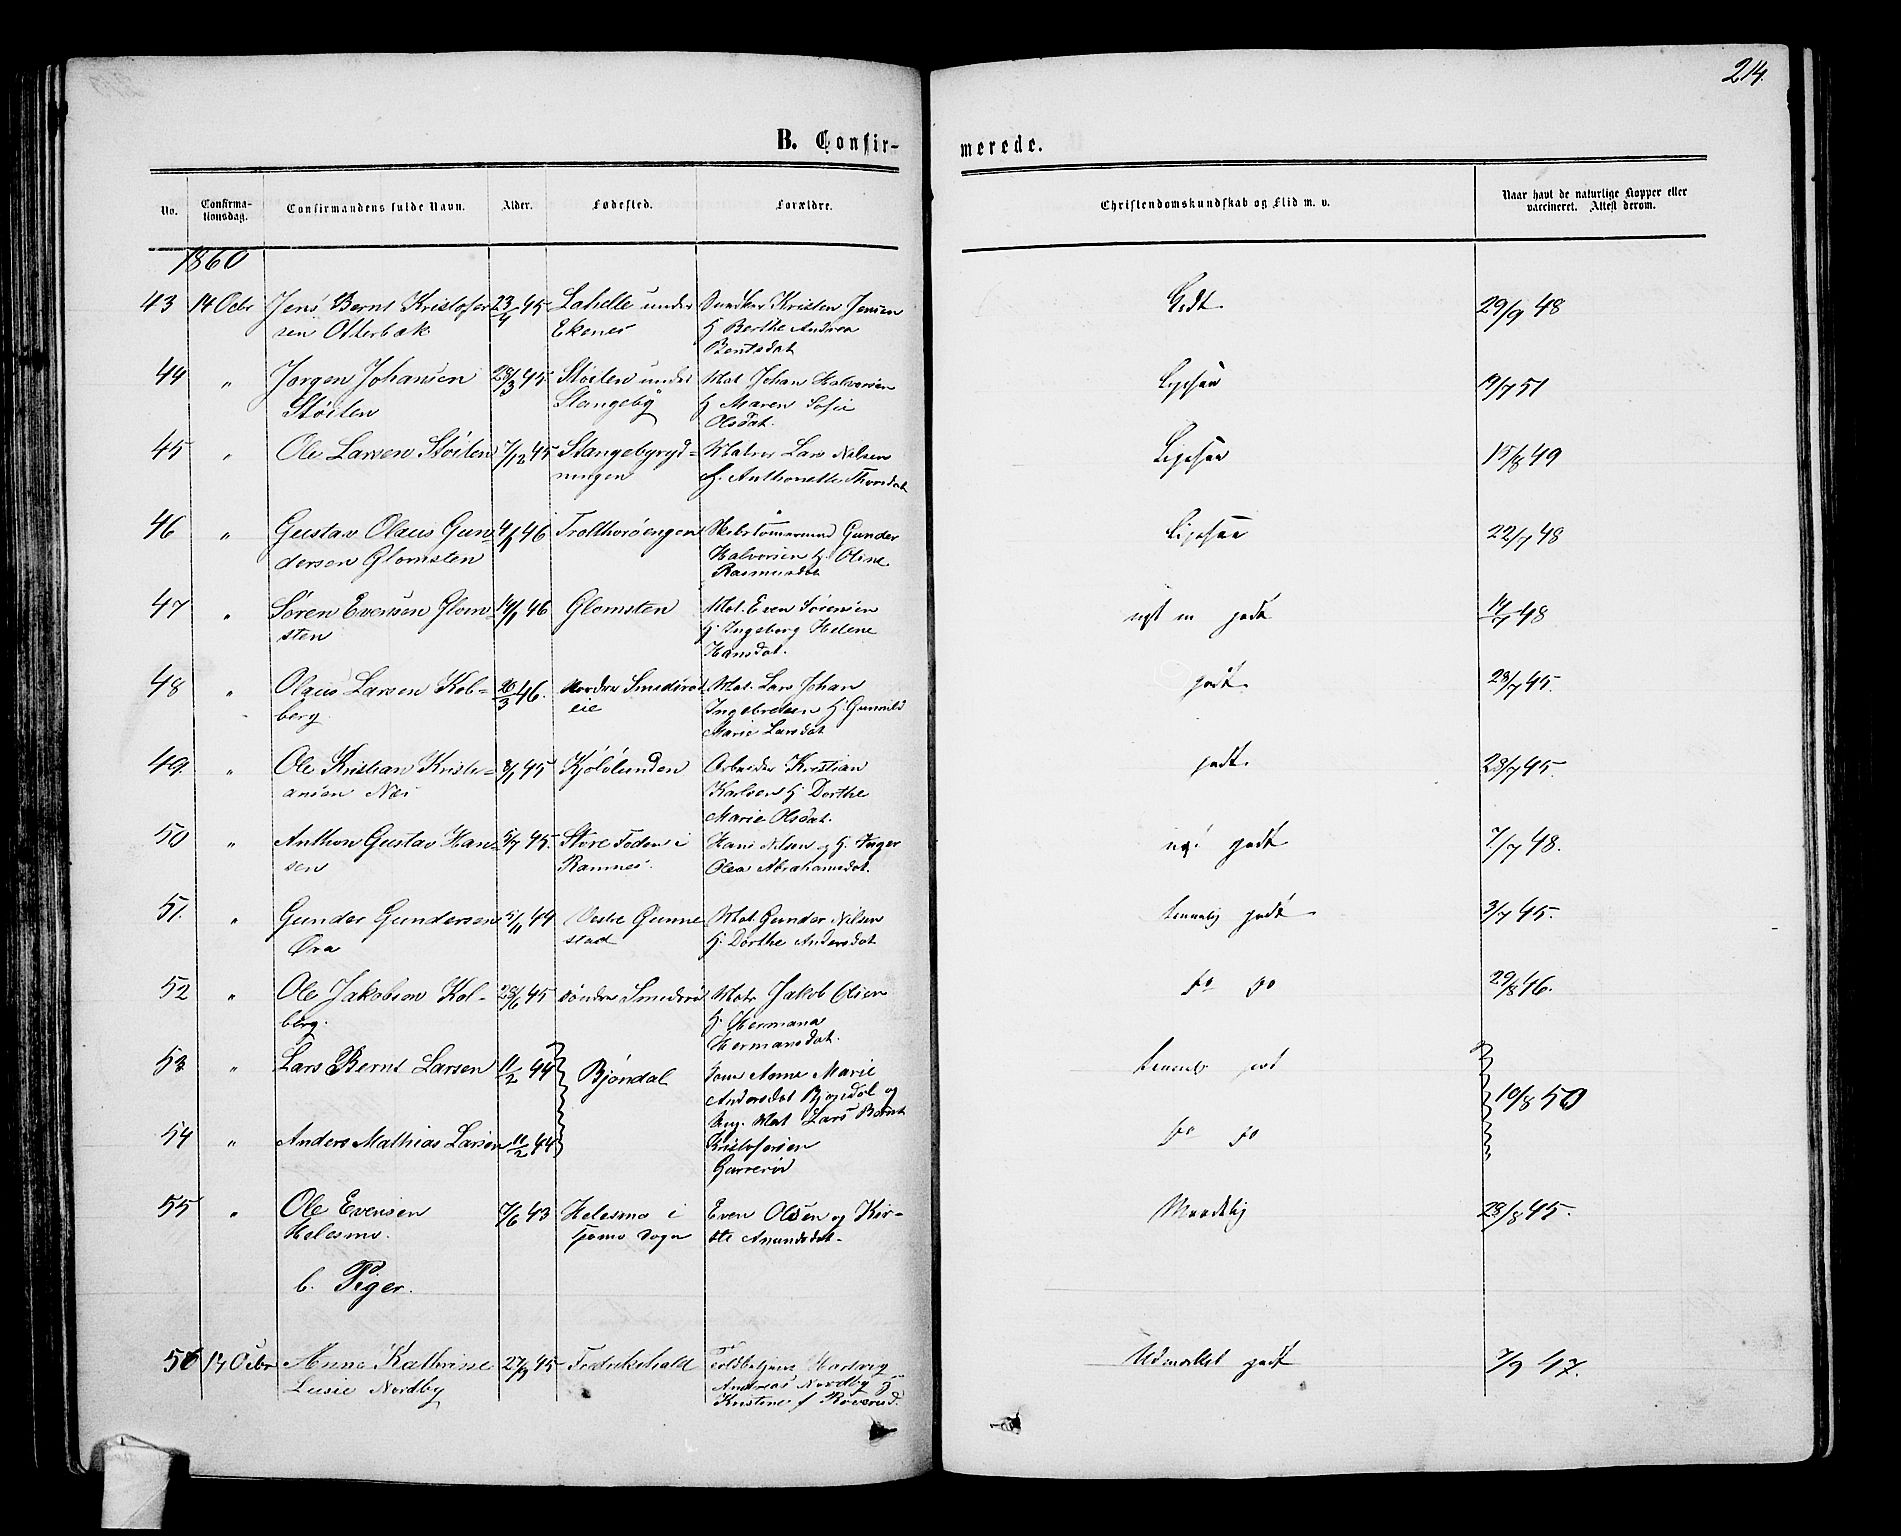 214.
B. Confirmerede.
No. Confirmationsdag. Confirmandens fulde Navn. Alder. Fødested. Forældre. Christendomskundskab og Flid m. v. Naar havt de naturlige Kopper eller vaccineret. Attest derom.
1860
43 14 Octbr Jens Bernt Kristofer 23/4 45 under Kristen Jensen Godt. 29/9 48
sen Otterbæk Ekenes H Berthe Andrea
Berntsdat
44 " Jørgen Johansen 28/3 45 Støilen under Mat Johan Halvorsen Ligesaa 19/7 51
Støilen Stangeby H Maren Sofie
Olsdat.
45 " Ole Larsen Støilen 7/12 45 Stangebyryd- Matrs Lars Nilsen Ligesaa 15/8 49
ningen H. Anthonette Thorsdat
46 " Gustav Olaus Gun- 4/1 46 Gunder Ligesaa 22/7 48
dersen Glomsten Halvorsen H. Oline
Rasmusdat
47 " Søren Evensen Glom- 14/1 46 Glomsten Mat. Even Sørensen godt 14/7 48
sten H. Ingeborg Helene
Hansdat.
48 " Olaus Larsen Kol- 20/3 46. Nordre Smidsrød Mat. Lars Johan godt. 23/7 45.
berg. eie Ingebretsen H. Gunnild
Marie Larsdat
49. " Ole Kristian Kristi- 8/1 45 Kjølølunden Arbeider Kristian godt. 23/7 45.
ansen Næs Karlsen H Dorthe
Marie Olsdat.
50 " Anthon Gustav Han- 5/7 45. Store Foden i Hans Nilsen og H. Inger godt 7/7 48.
sen Ramnes. Olea Abrahamsdat.
51. " Gunder Gundersen 5/11 44 Vestre Gunne- Mat Gunder Nilsen temmelig godt 3/7 45.
Øra stad H. Dorthe Andersdat
52 " Ole Jakobsen Kol- 28/6 45 Søndre Smidsrø Matr Jakob Olsen do do 29/8 46.
berg. H. Hermana
Hermansdat.
53 " Lars Bernt Larsen 11/2 44 Bjøndal Anne Marie temmelig godt 10/8 50
Andersdat Bjøndal og
Ung. Mat Lars Bernt
54 " Anders Mathias Larsen 11/2 44 Kristofersen do do
55 " Ole Evensen 7/6 43 Helesmo i Even Olsen og Kir- Maadelig 23/8 45.
Helesmo. Sogn ste Amundsdat.
b. Piger.
56 14 Octbr Anne Kathrine 27/9 45 Fredrikshald Toldbetjent Hartvig Udmærket godt 7/9 47.
Lusie Nordby Andreas Nordby og
Kristine f